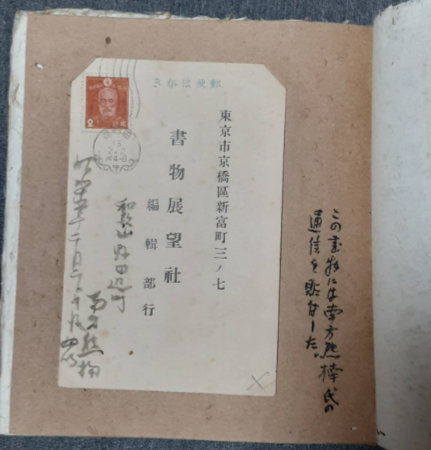 この書物には南方熊楠氏の
通信を貼付した。
郵便はがき
東京市京橋區新富町三ノ七
書物展望社
編輯部行
和歌山県田辺町
南方熊楠